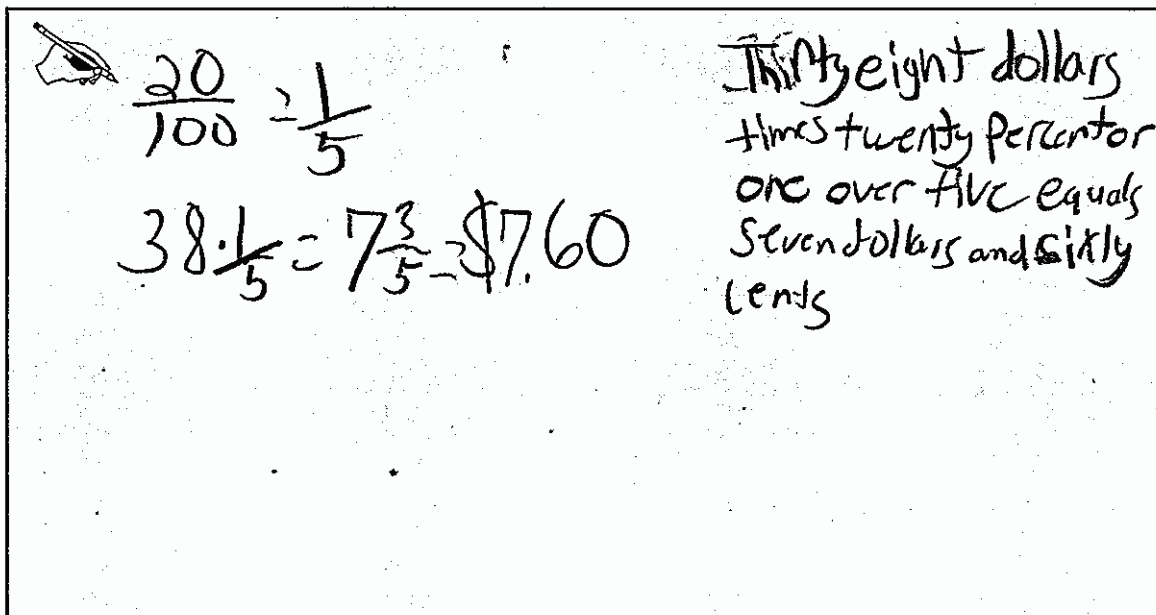 20/100 = 1/5
38 · 1/5 = 7 3/5 = $7.60
Thirty eight dollars
times twenty percent or
one over five equals
seven dollars and sixty
cents